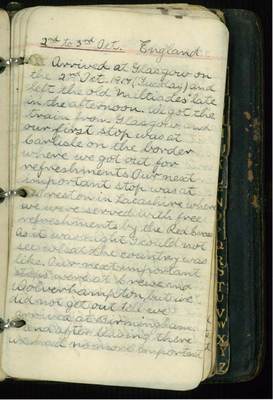 2nd to 3rd Oct. England.
Arrived at Glasgow on
the 2nd Oct. 1917 (Tuesday) and
left the old Miltiades late
in the afternoon. We got the
train from Glasgow and
our first stop was at
Carlisle on the border
where we got out for
refreshments. Our next
important stop was at
Preston in Lancashire where
we were served with free
refreshments by the Red Cross
as it was night I could not
see what the country was
like. Our next important
stops were at Crewe and
Wolverhampton but we
did not get out till we
arrived at Birmingham.
and after leaving there
we made no more important
U
V
W
X
Y
Z